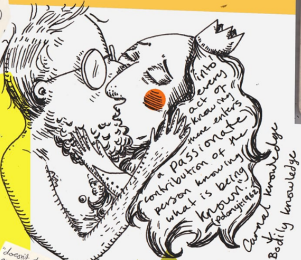 into
every
act of
knowing
there enters
a passionate
contribution of the
person knowing
what is being
known!
Carnal knowledge
Bodily knowledge
doesn't